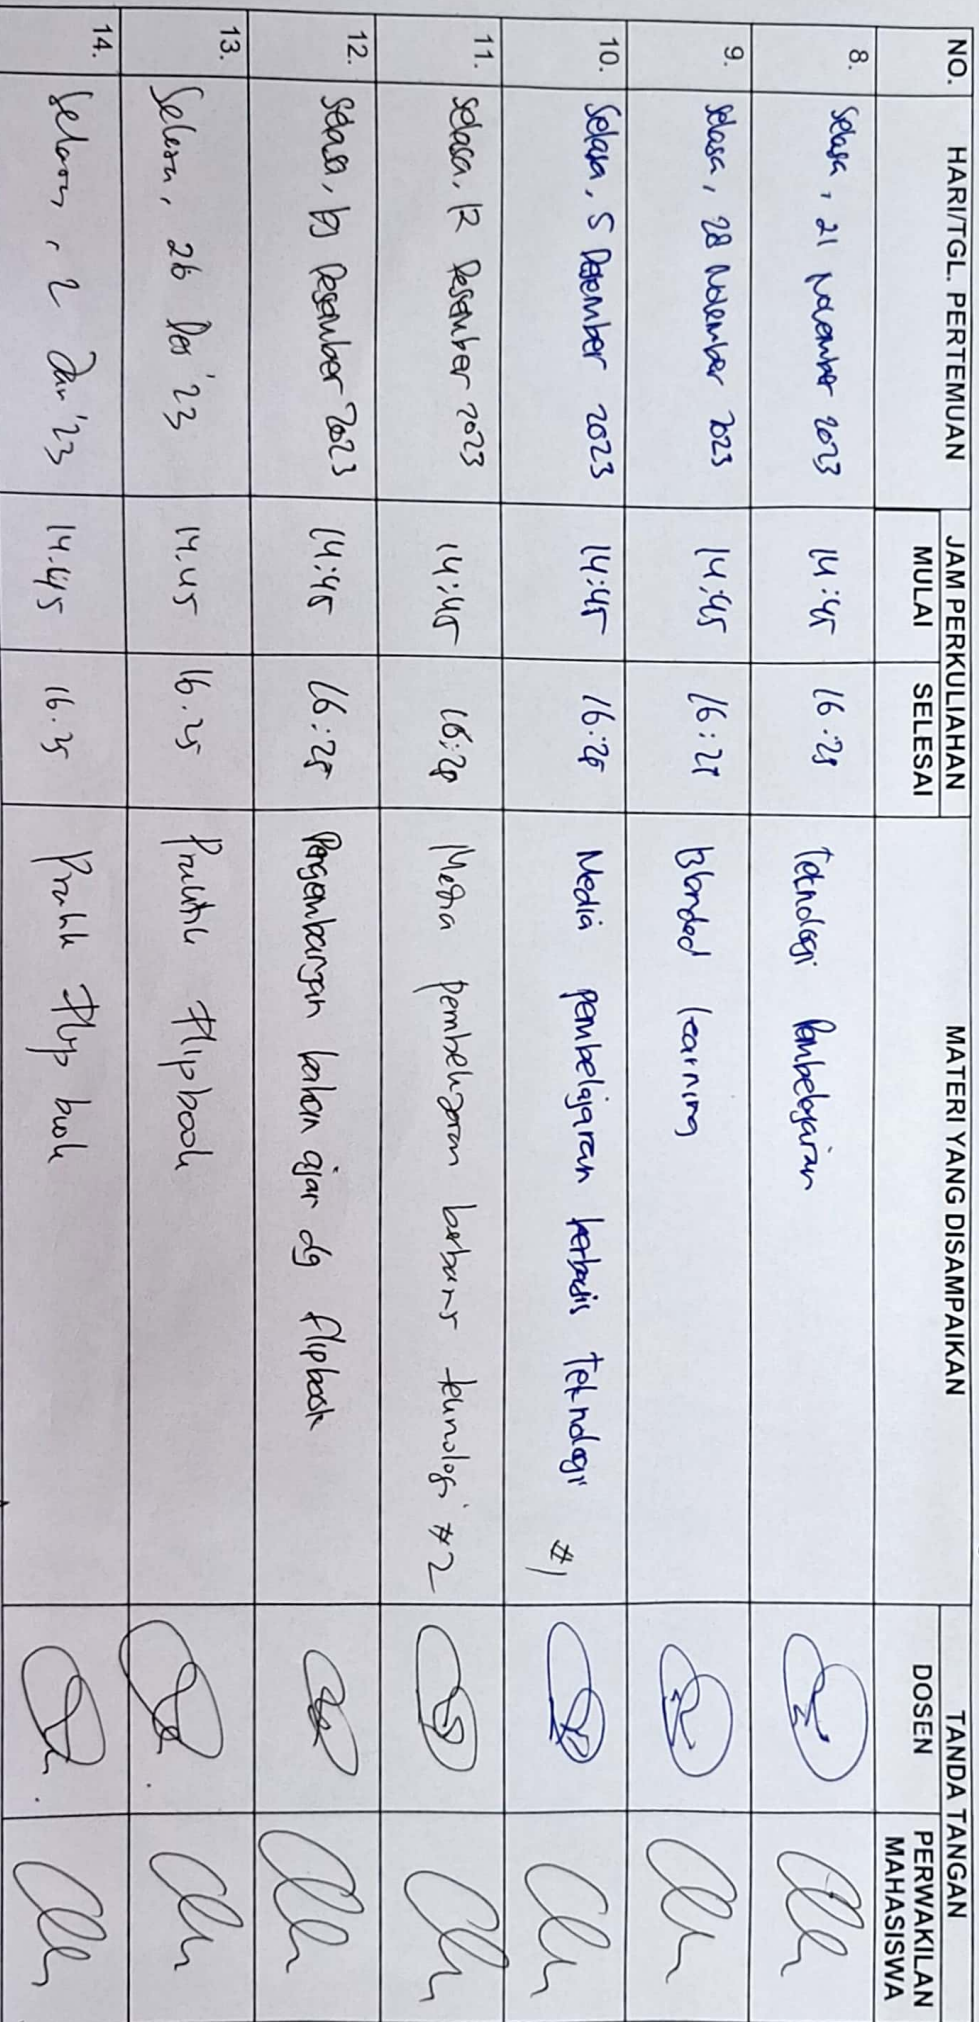 NO. HARI/TGL. PERTEMUAN JAM PERKULIAHAN MATERI YANG DISAMPAIKAN TANDA TANGAN
MULAI SELESAI DOSEN PERWAKILAN MAHASISWA
8. Selasa, 21 November 2023 14:45 16.25 Teknologi Pembelajaran
9. Selasa, 28 November 2023 14:45 16:25 Blended Learning
10. Selasa, 5 Desember 2023 14:45 16:25 Media pembelajaran berbasis Teknologi #1
11. Selasa, 12 Desember 2023 14:45 16:25 Media pembelajaran berbasis teknologi #2
12. Selasa, 19 Desember 2023 14:45 16:25 Pengembangan bahan ajar dg flipbook
13. Selasa, 26 Des '23 14.45 16.25 Praktik Flipbook
14. Selasa, 2 Jan '23 14.45 16.25 Praktik Flip book